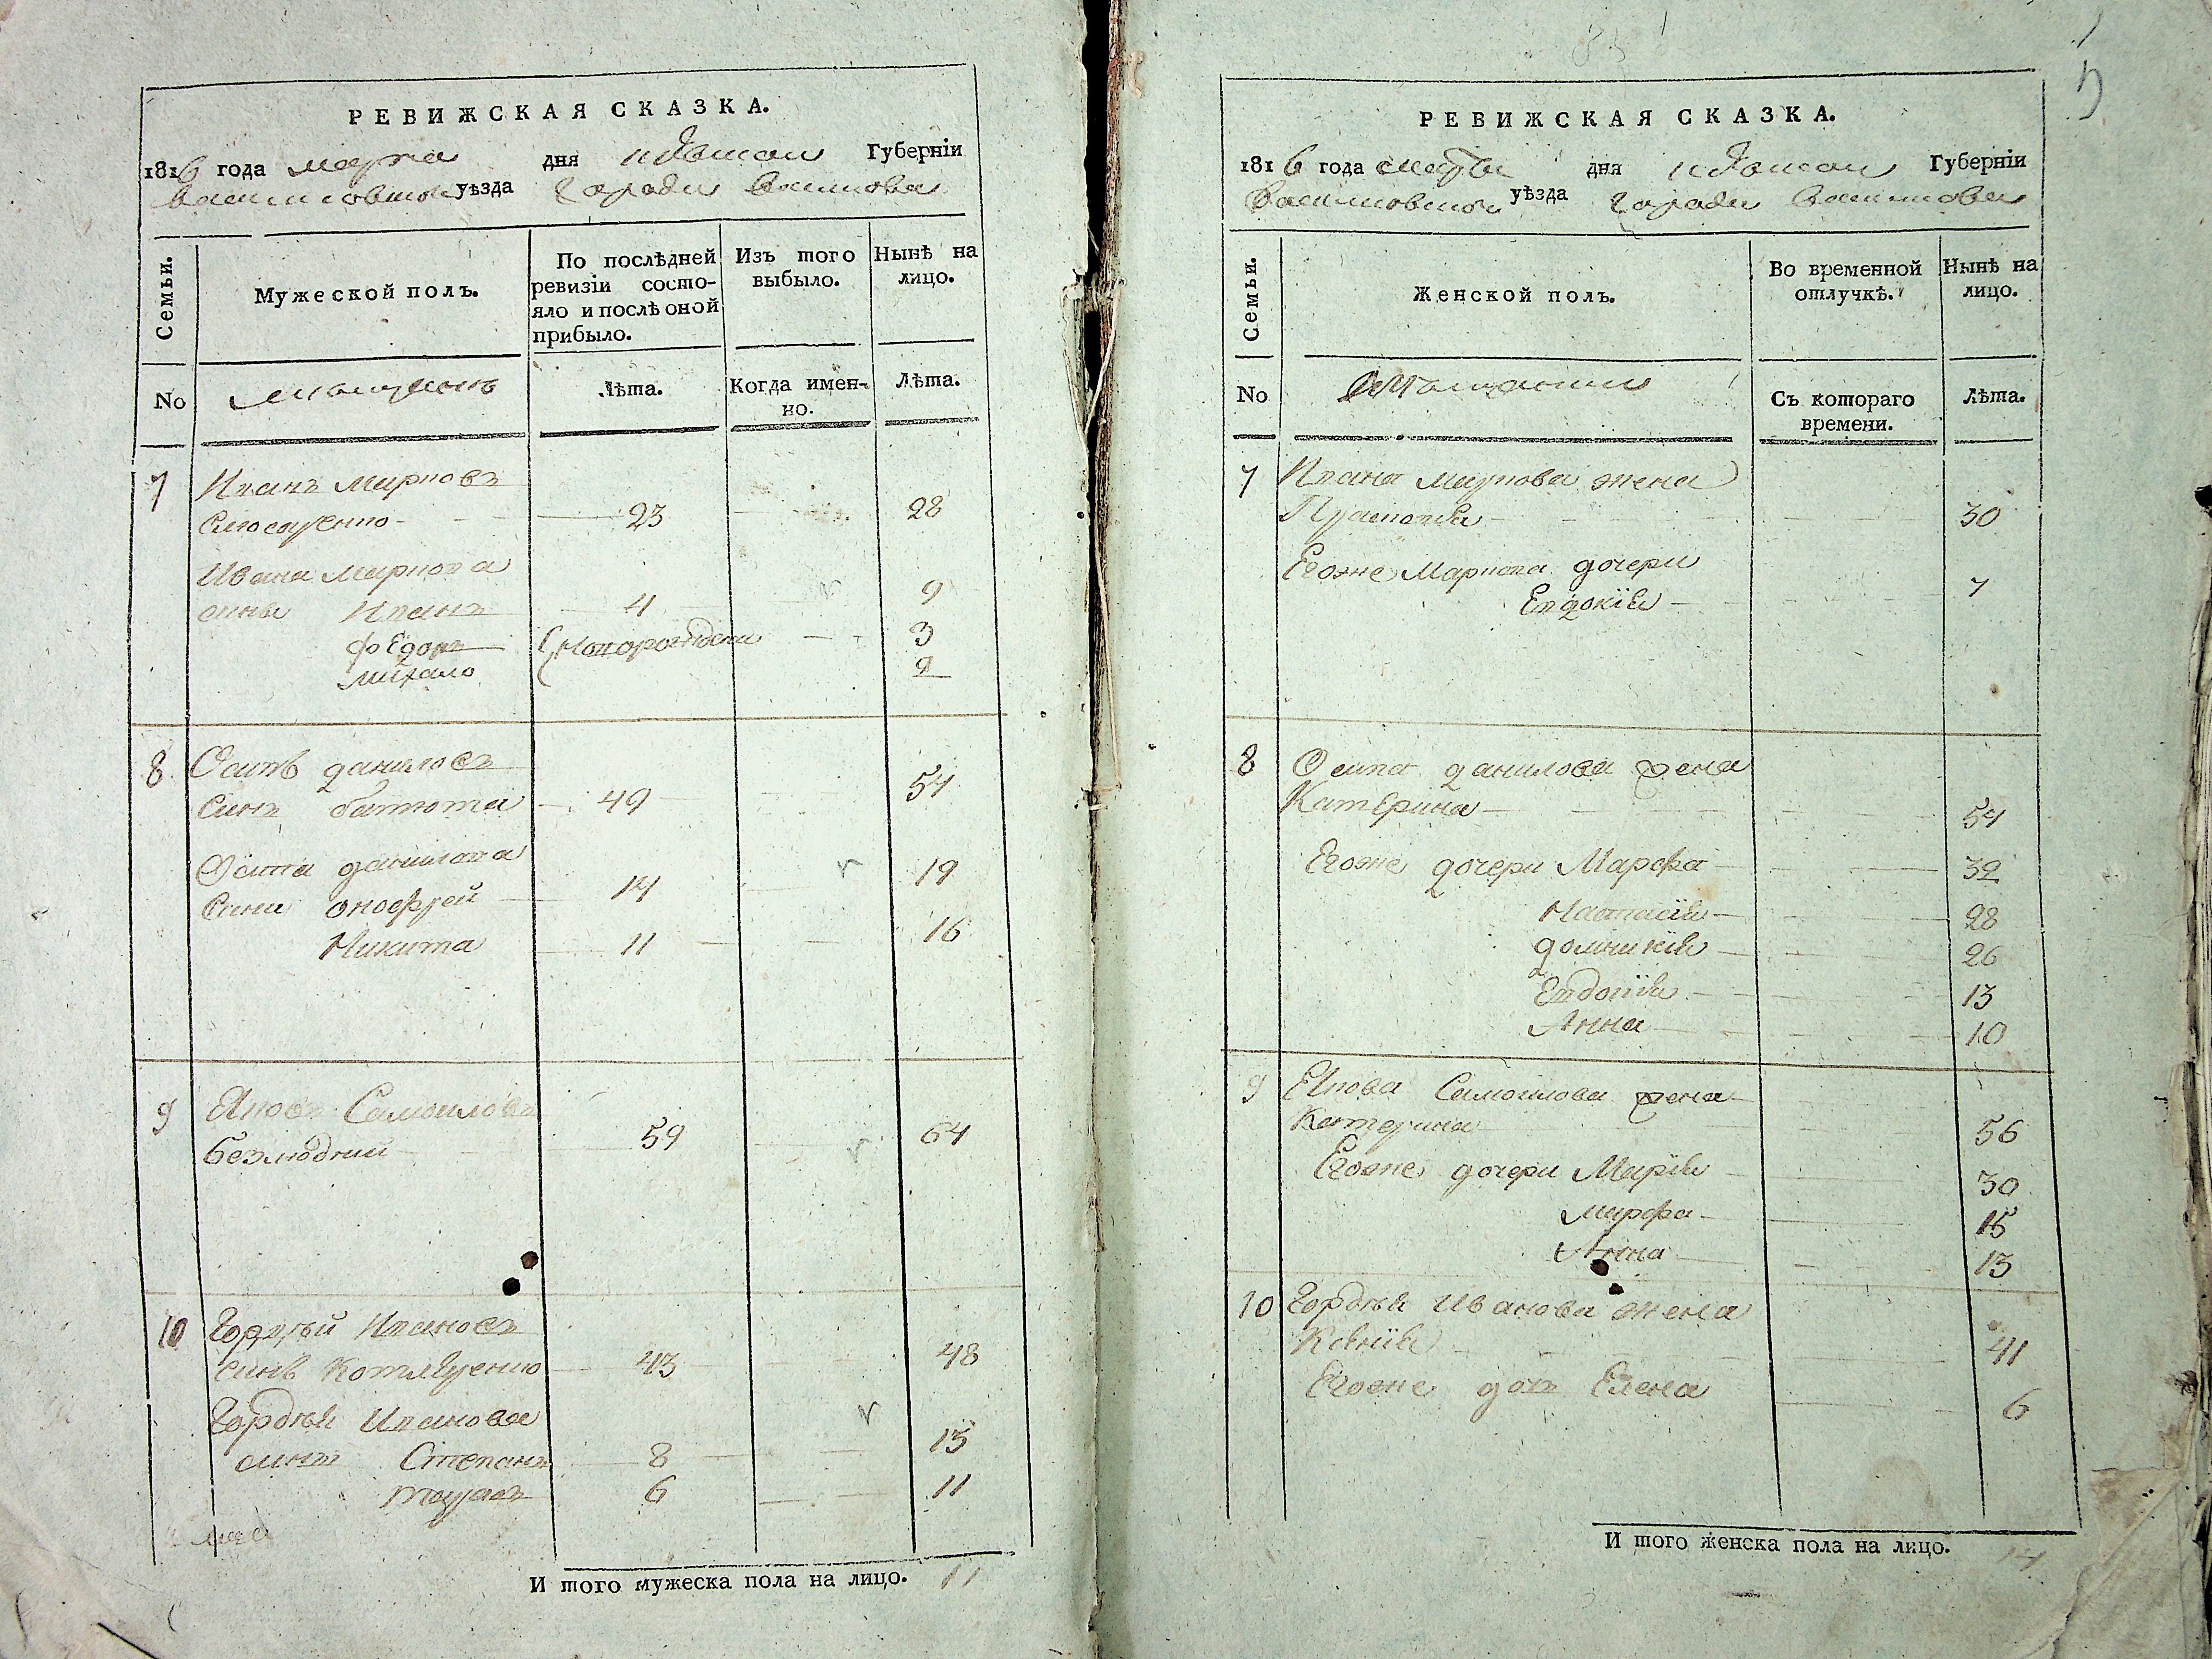 РЕВИЖСКАЯ СКАЗКА.
1816 года марта дня Киевской Губерніи
Васильковской уѣзда города Василькова
Семьи.
Мужеской полъ.
По послѣдней ревизіи состояло и послѣ оной прибыло.
Изъ того выбыло.
Нынѣ на лицо.
No
Лѣта.
Когда именно.
Лѣта.
7 Иванъ Марковъ
23 28
Ивана Маркова
сины Иванъ 4 9
Фёдоръ новорожденни 3
Михайло 2
8 Осипъ Даниловъ
синъ Батюта 49 54
Осипа Данилова
сини Онофрей 14 19
Никита 11 16
9 Яковъ Самойловъ
Безлюдний 59 64
10 Гордѣй Ивановъ
синъ Котляренко 43 48
Гордѣя Иванова
синъ Степанъ 8 13
Тарасъ 6 11
И того мужеска пола на лицо. 11
5
РЕВИЖСКАЯ СКАЗКА.
1816 года марта дня Киевской Губерніи
Васильковской уѣзда города Василькова
Семьи.
Женской полъ.
Во временной отлучкѣ.
Нынѣ на лицо.
No
Съ котораго времени.
Лѣта.
7 Ивана Маркова жена
30
Егоже Маркова дочери
Евдокія 7
8 Осипа Данилова жена
Катерина 54
Егоже дочери Марфа 32
Настасія 28
Домникія 26
Евдокія 13
Анна 10
9 Якова Самойлова жена
Катерина 56
Егоже дочери Марія 30
Марфа 15
Анна 13
10 Гордѣя Иванова жена
Ксенія 41
Егоже дочь Елена 6
И того женска пола на лицо. 14